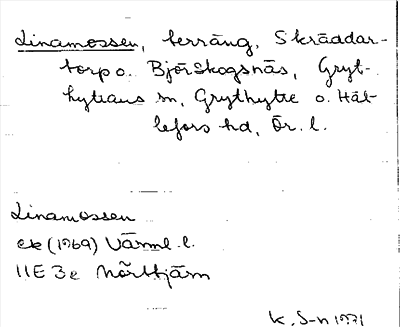 Linamossen, terräng, Skräddar-
torp o. Björskogsnäs, Gryt-
hyttans sn, Grythytte o. Häl-
lefors hd, Ör. l.
Linamossen
ek (1969) Värml. l.
11E 3e Norttjärn
K. S-n 1971